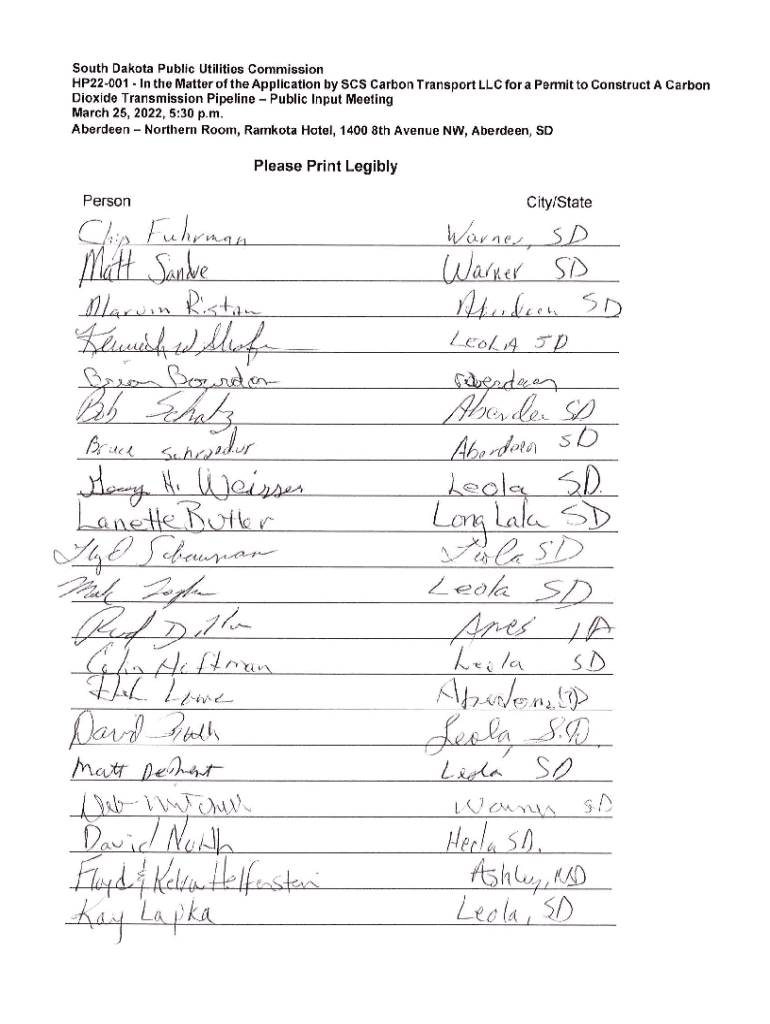 South Dakota Public Utilities Commission
HP22-001 - In the Matter of the Application by SCS Carbon Transport LLC for a Permit to Construct A Carbon
Dioxide Transmission Pipeline – Public Input Meeting
March 25, 2022, 5:30 p.m.
Aberdeen – Northern Room, Ramkota Hotel, 1400 8th Avenue NW, Aberdeen, SD
Please Print Legibly
Person City/State
Chip Fuhrman Warner, SD
Matt Sandve Warner SD
Marvin Aberdeen SD
Kenneth W LEOLA SD
Brian Bourdon Aberdeen
Bob Schatz Aberdeen SD
Bruce Schroedur Aberdeen SD
H. Weisser Leola SD.
Lanette Butler Long Lake SD
Leola SD
Leola SD
Ames IA
Colin Hoffman Leola SD
Aberdeen, SD
David Leola, S.D.
Matt Leola SD
Deb Mitchell Warner SD
David North Hecla SD.
Floyd & Helfenstein Ashley, ND
Kay Lapka Leola, SD